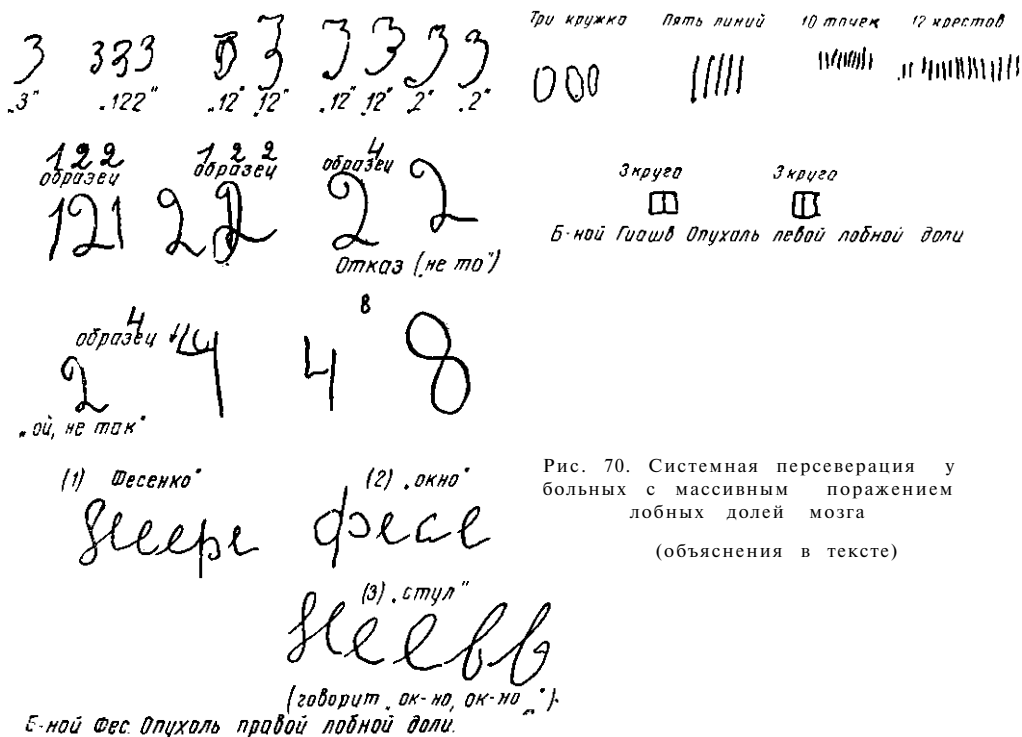 3 333 3 3 3 3 3
„3" „122" „12" „12" „12" „12" „2" „2"
Три кружка Пять линий 10 точек 12 крестов
122 122 4
образец образец образец
121 2 2 2 2
Отказ („не то")
3 круга 3 круга
Б-ной Гиашв Опухоль левой лобной доли
4 8
образец 4 4 8
2
„ой, не так"
(1) Фесенко" (2) „окно"
(3) „стул"
(говорит „ок-но, ок-но„").
Б-ной Фес. Опухоль правой лобной доли.
Рис. 70. Системная персеверация у
больных с массивным поражением
лобных долей мозга
(объяснения в тексте)